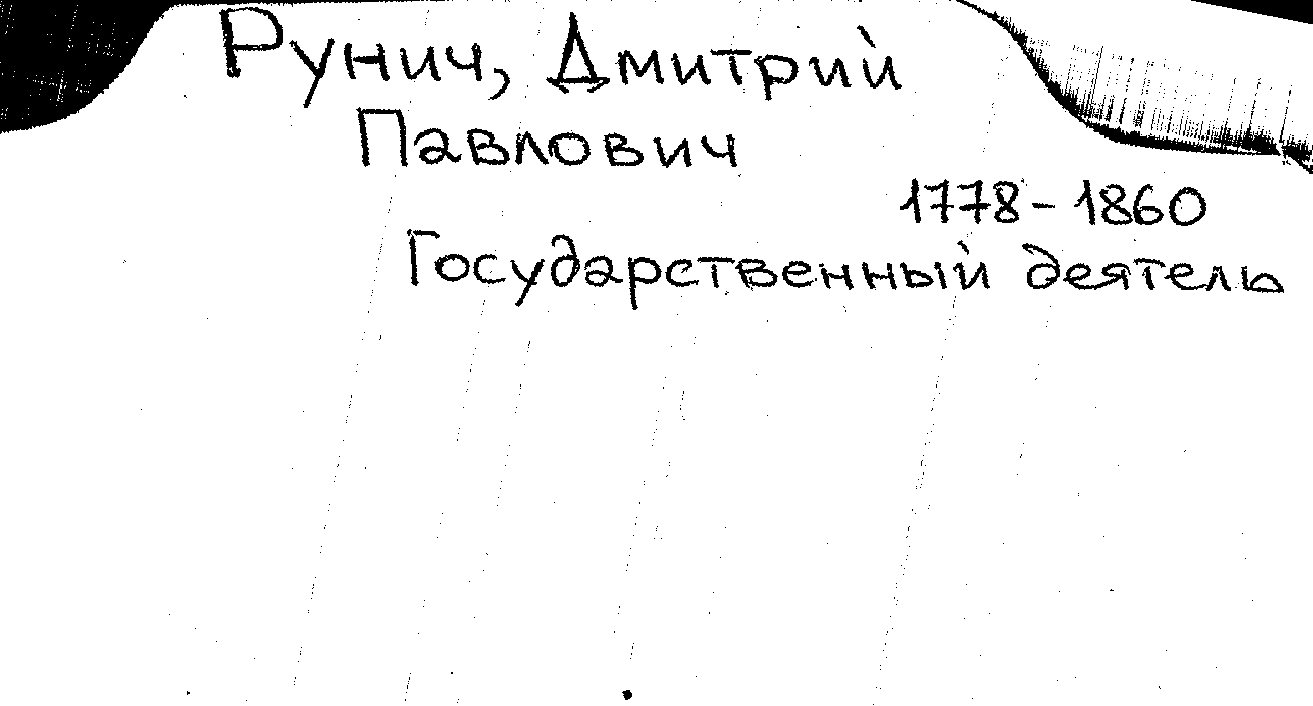 Рунич, Дмитрий
Павлович
1778-1860
Государственный деятель